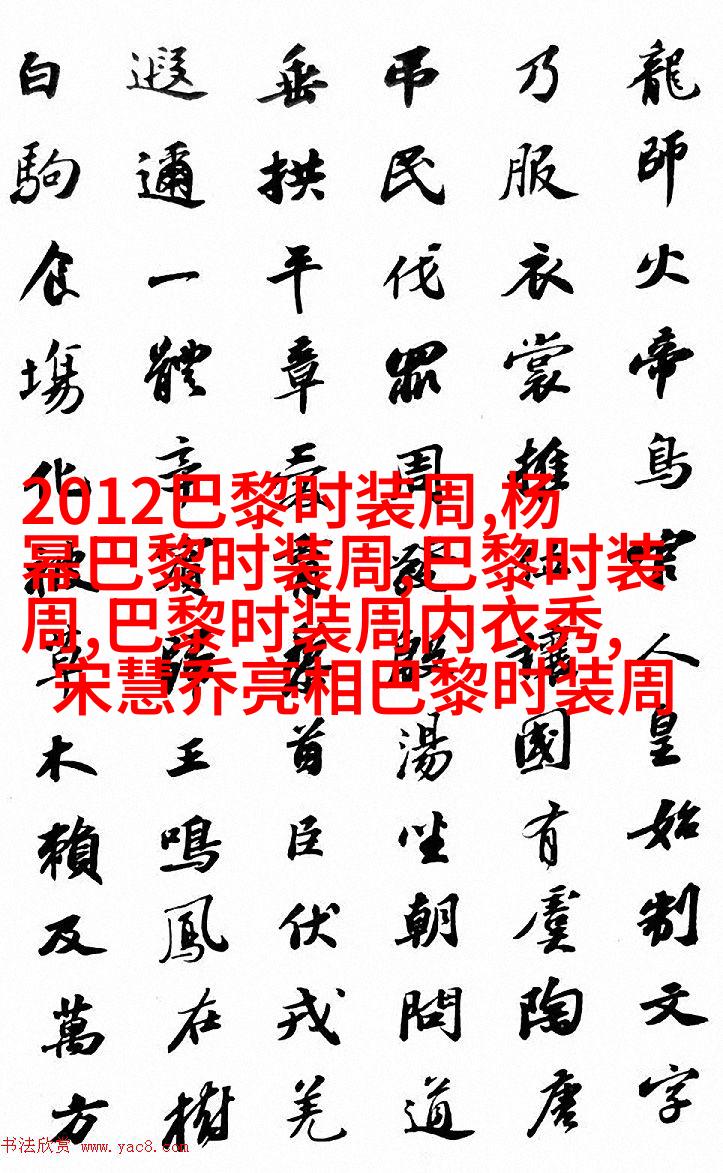 龍師火帝鳥官人皇始制文字
乃服衣裳推位讓國有虞陶唐
吊民伐罪周發殷湯坐朝問道
垂拱平章愛育黎首臣伏戎羌
遐邇一體率賓歸王鳴鳳在樹
白駒食場化被草木賴及萬方
2012巴黎时装周,杨
幂巴黎时装周,巴黎时装
周,巴黎时装周内衣秀,
宋慧乔亮相巴黎时装周
书法欣赏 www.yac8.com